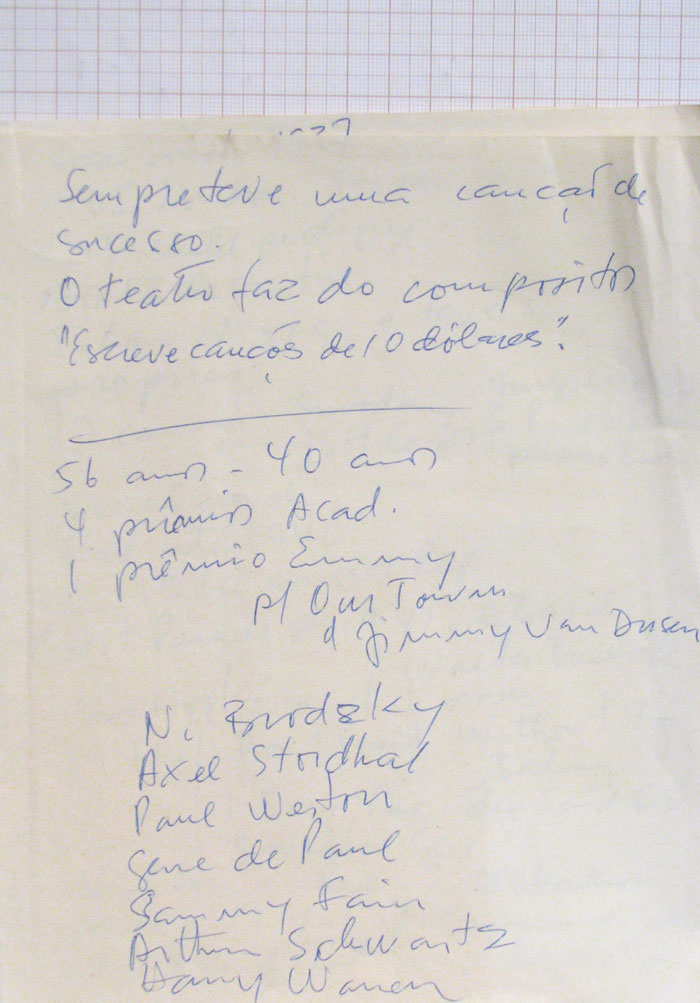 Sempre teve uma canção de
sucesso.
O teatro faz do compositor
"Escreve canções de 10 dólares".
56 anos - 40 anos
4 prêmios Acad.
1 prêmio Emmy
p/ Our Town
d Jimmy Van Dusen
N. Brodszky
Axel Stordhal
Paul Weston
Gene de Paul
Sammy Fain
Arthur Schwartz
Harry Warren